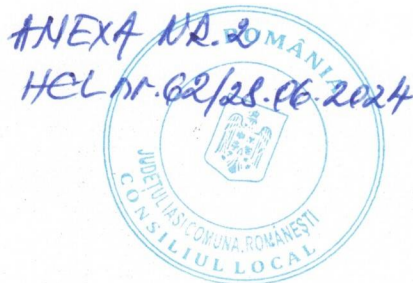 ANEXA NR. 2
HCL nr. 62/28.06.2024
ROMÂNIA
JUDEȚUL IAȘI COMUNA ROMÂNEȘTI
CONSILIUL LOCAL